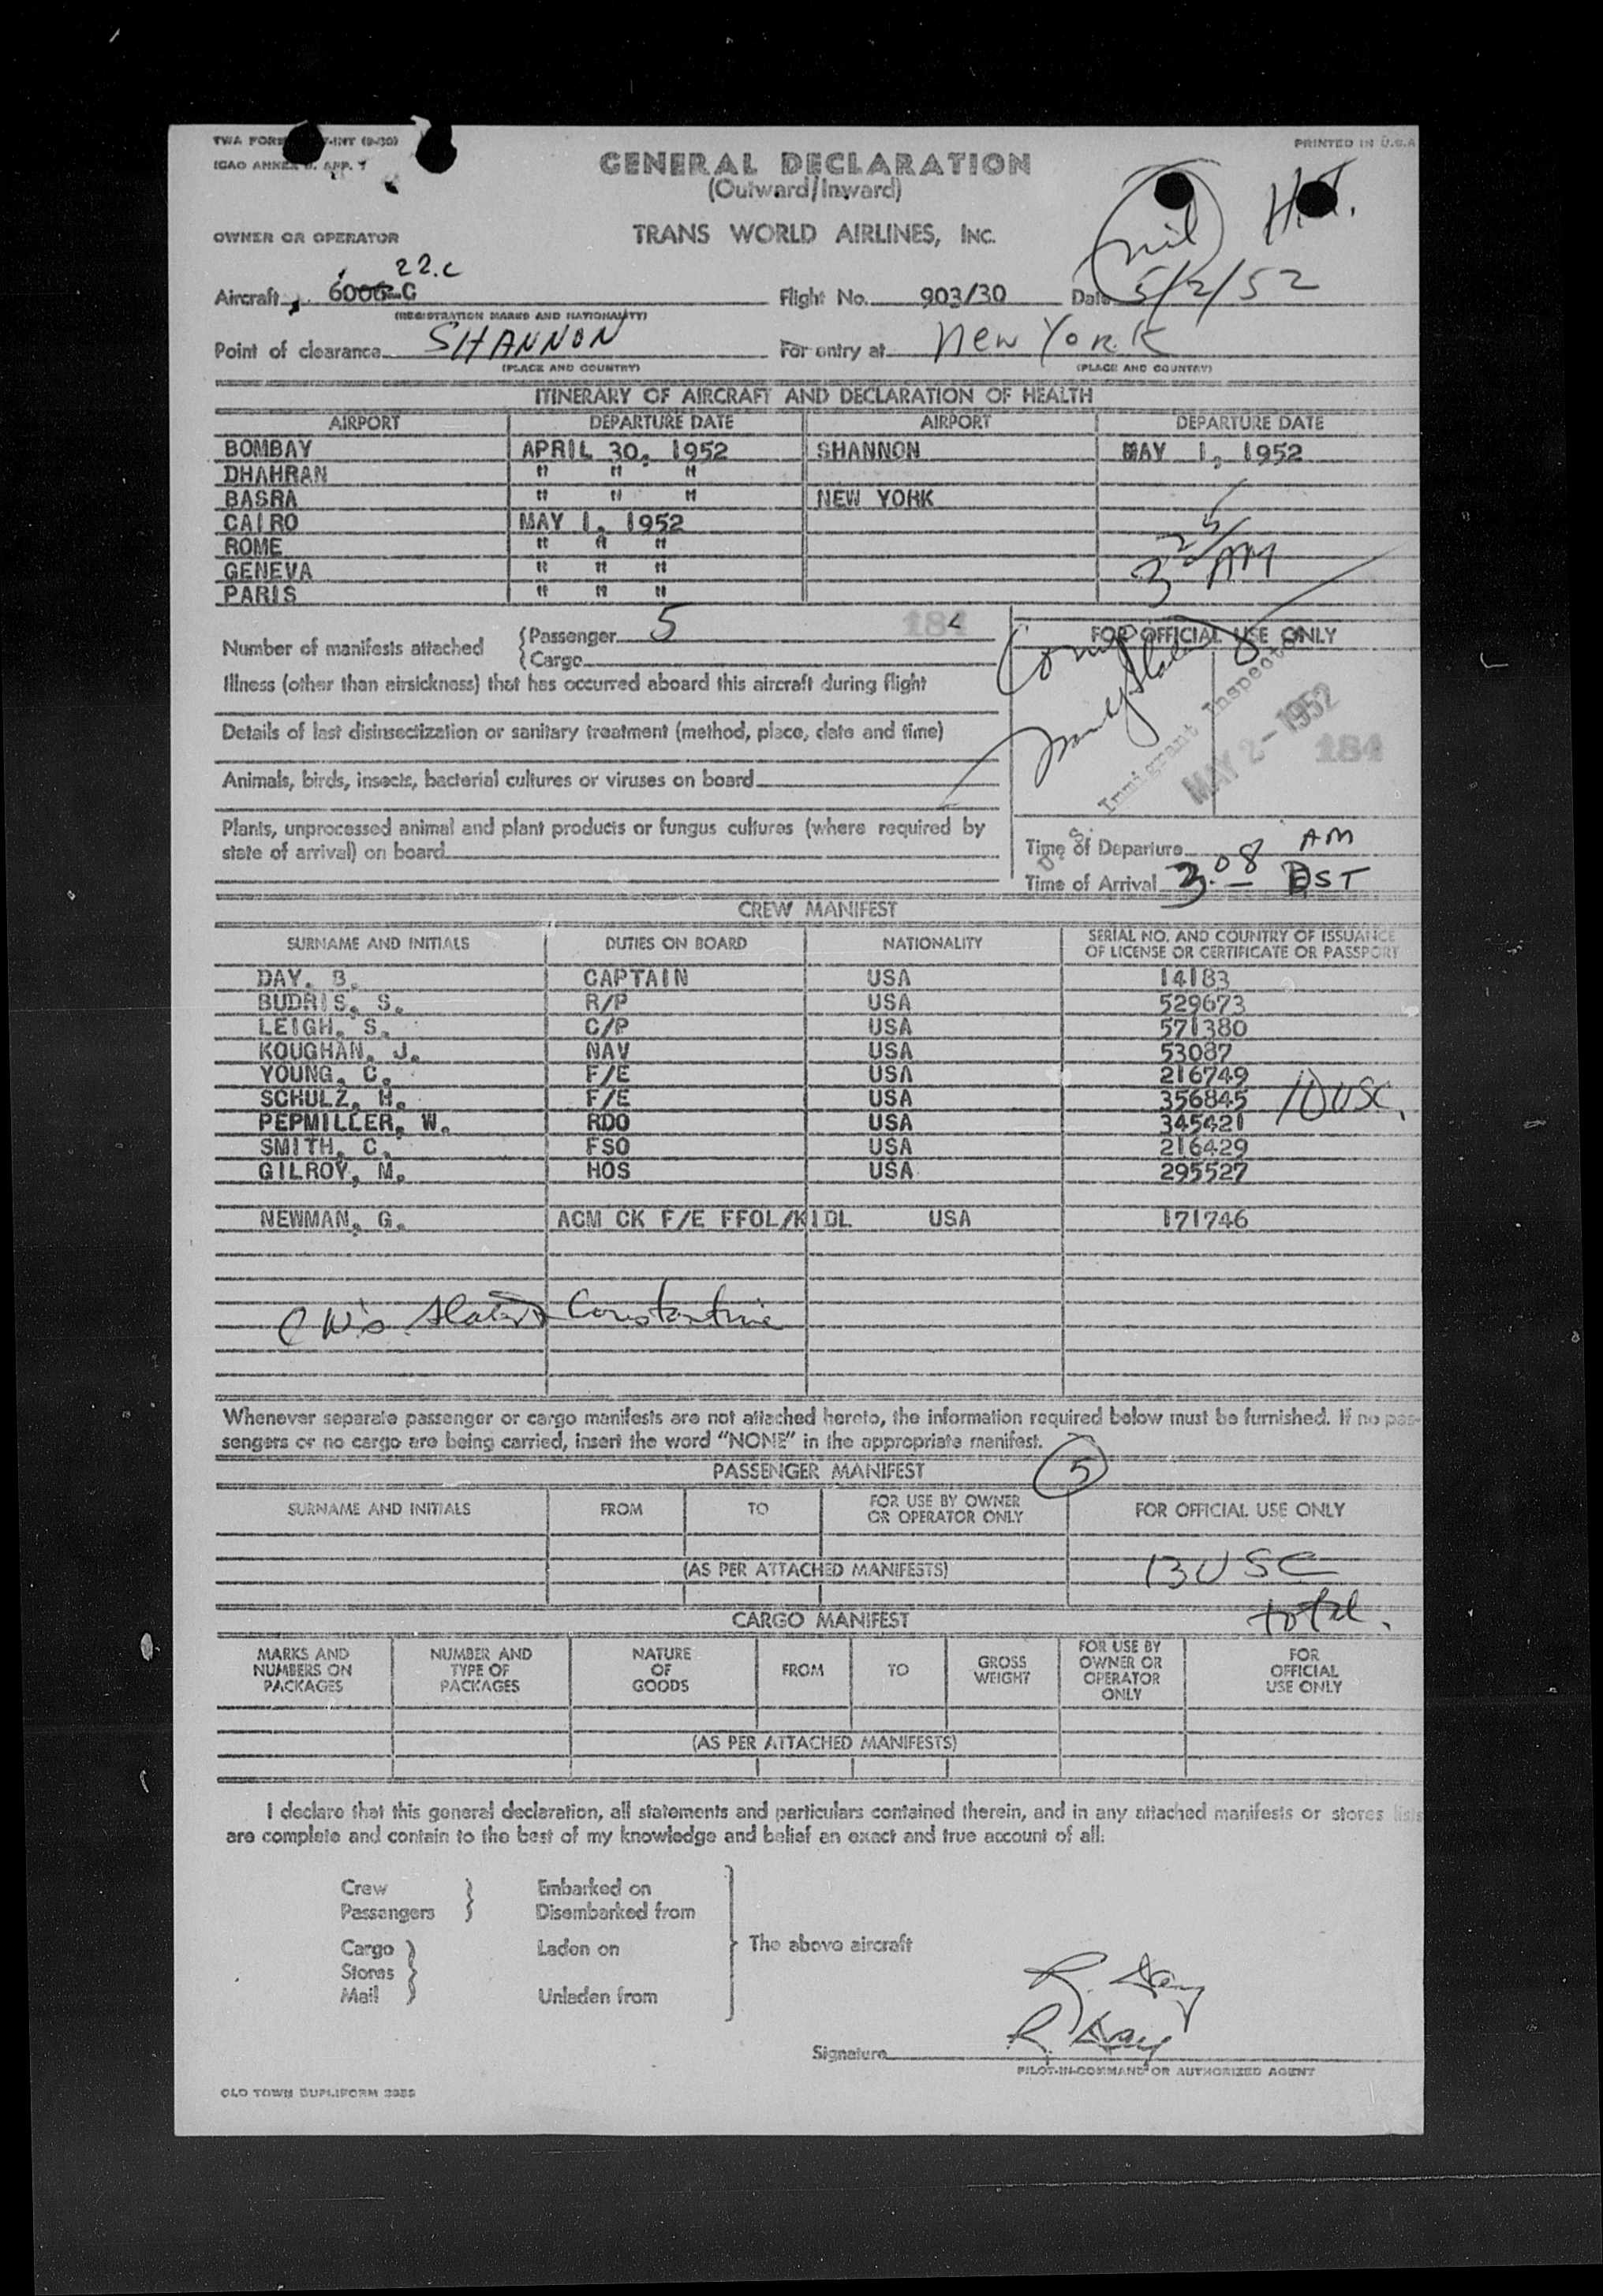 PRINTED IN U.S.A
GENERAL DECLARATION
(Outward/Inward)
nil
TRANS WORLD AIRLINES, INC.
OWNER OR OPERATOR
22.C
Aircraft 6006-C Flight No. 903/30 Date 5/2/52
(REGISTRATION MARKS AND NATIONALITY)
Point of clearance SHANNON For entry at New York
(PLACE AND COUNTRY) (PLACE AND COUNTRY)
ITINERARY OF AIRCRAFT AND DECLARATION OF HEALTH
AIRPORT DEPARTURE DATE AIRPORT DEPARTURE DATE
BOMBAY APRIL 30, 1952 SHANNON MAY 1, 1952
DHAHRAN " " "
BASRA " " " NEW YORK
CAIRO MAY 1, 1952
ROME " " "
GENEVA " " "
PARIS " " "
3 25 AM
Number of manifests attached {Passenger 5 184
{Cargo
FOR OFFICIAL USE ONLY
Illness (other than airsickness) that has occurred aboard this aircraft during flight
Details of last disinsectization or sanitary treatment (method, place, date and time)
Immigrant Inspector
MAY 2 - 1952
184
Animals, birds, insects, bacterial cultures or viruses on board
Plants, unprocessed animal and plant products or fungus cultures (where required by
state of arrival) on board
Time of Departure AM
Time of Arrival 3.08 DST
CREW MANIFEST
SURNAME AND INITIALS DUTIES ON BOARD NATIONALITY SERIAL NO. AND COUNTRY OF ISSUANCE
OF LICENSE OR CERTIFICATE OR PASSPORT
DAY, B. CAPTAIN USA 14183
BUDRIS, S. R/P USA 529673
LEIGH, S. C/P USA 571380
KOUGHAN, J. NAV USA 53087
YOUNG, C. F/E USA 216749
SCHULZ, H. F/E USA 356845 10 USC.
PEPMILLER, W. RDO USA 345421
SMITH, C. FSO USA 216429
GILROY, M. HOS USA 295527
NEWMAN, G. ACM CK F/E FFOL/KIDL USA 171746
Constantine
Whenever separate passenger or cargo manifests are not attached hereto, the information required below must be furnished. If no pas-
sengers or no cargo are being carried, insert the word "NONE" in the appropriate manifest.
PASSENGER MANIFEST 5
SURNAME AND INITIALS FROM TO FOR USE BY OWNER OR OPERATOR ONLY FOR OFFICIAL USE ONLY
(AS PER ATTACHED MANIFESTS) 13 USC
total.
CARGO MANIFEST
MARKS AND NUMBERS ON PACKAGES NUMBER AND TYPE OF PACKAGES NATURE OF GOODS FROM TO GROSS WEIGHT FOR USE BY OWNER OR OPERATOR ONLY FOR OFFICIAL USE ONLY
(AS PER ATTACHED MANIFESTS)
I declare that this general declaration, all statements and particulars contained therein, and in any attached manifests or stores lists
are complete and contain to the best of my knowledge and belief an exact and true account of all:
Crew Embarked on
Passengers Disembarked from
Cargo Laden on The above aircraft
Stores
Mail Unladen from
R. Day
Signature R. Day
PILOT-IN-COMMAND OR AUTHORIZED AGENT
OLD TOWN DUPLIFORM